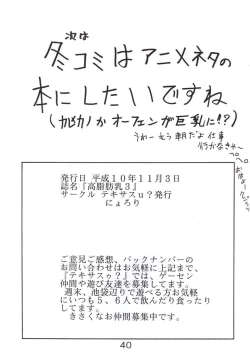 次は
冬コミはアニメネタの
本にしたいですね
(カルカノか オーフェンが巨乳に!?)
うわーもう朝だよ 仕事
行かなきゃ〜
発行日 平成10年11月3日
誌名『高脂肪乳3』
サークル テキサスu?発行
にょろり
ご意見ご感想、バックナンバーの
お問い合わせはお気軽に上記まで、
『テキサスゥ?』では、ゲーセン
仲間や遊び友達を募集してます。
週末、池袋辺りで遊べる方お気軽
にいつも5、6人で飲んだり食ったり
してます。
きさくなお仲間募集中です。
40